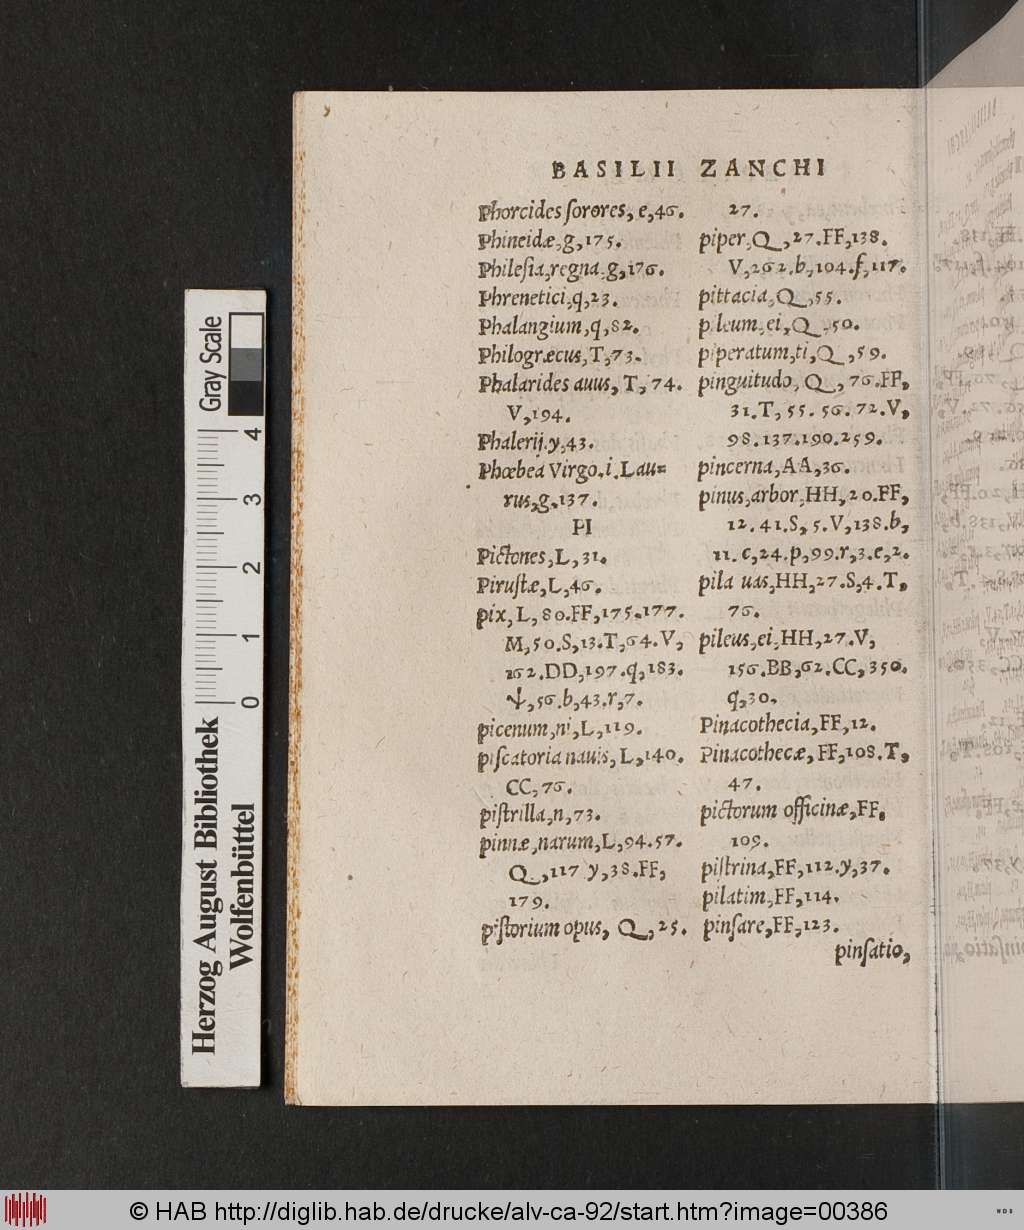 BASILII ZANCHI
Phorcides ſorores, e,46.
Phineidæ,g,175.
Phileſia,regna,g,176.
Phrenetici,q,23.
Phalangium,q,82.
Philogræcus,T,73.
Phalarides auus, T, 74.
V,194.
Phalerij.y,43.
Phœbea Virgo.i.Lau=
rus,g,137.
PI
Pictones,L,31.
Piruſtæ,L,46.
pix,L,80.FF,175.177.
M,50.S,13.T,64.V,
162.DD,197.q,183.
Ψ,56.b,43.r,7.
picenum,ni,L,119.
piſcatoria nauis,L,140.
CC,76.
piſtrilla,n,73.
pinnæ,narum,L,94.57.
Q,117 y,38.FF,
179.
piſtorium opus, Q,25.
27.
piper,Q,27.FF,138.
V,262.b,104.f,117.
pittacia,Q,55.
pileum,ei,Q,50.
piperatum,ti,Q,59.
pinguitudo, Q, 76.FF,
31.T,55.56.72.V,
98.137.190.259.
pincerna,AA,36.
pinus,arbor,HH,20.FF,
12.41.S,5.V,138.b,
11.c,24.p,99.r,3.e,2.
pila uas,HH,27.S,4.T,
76.
pileus,ei,HH,27.V,
156.BB,62.CC,350.
q,30.
Pinacothecia,FF,12.
Pinacothecæ,FF,108.T,
47.
pictorum officinæ,FF,
109.
piſtrina,FF,112.y,37.
pilatim,FF,114.
pinſare,FF,123.
pinſatio,
Gray Scale
4
3
2
1
0
Herzog August Bibliothek
Wolfenbüttel
© HAB http://diglib.hab.de/drucke/alv-ca-92/start.htm?image=00386